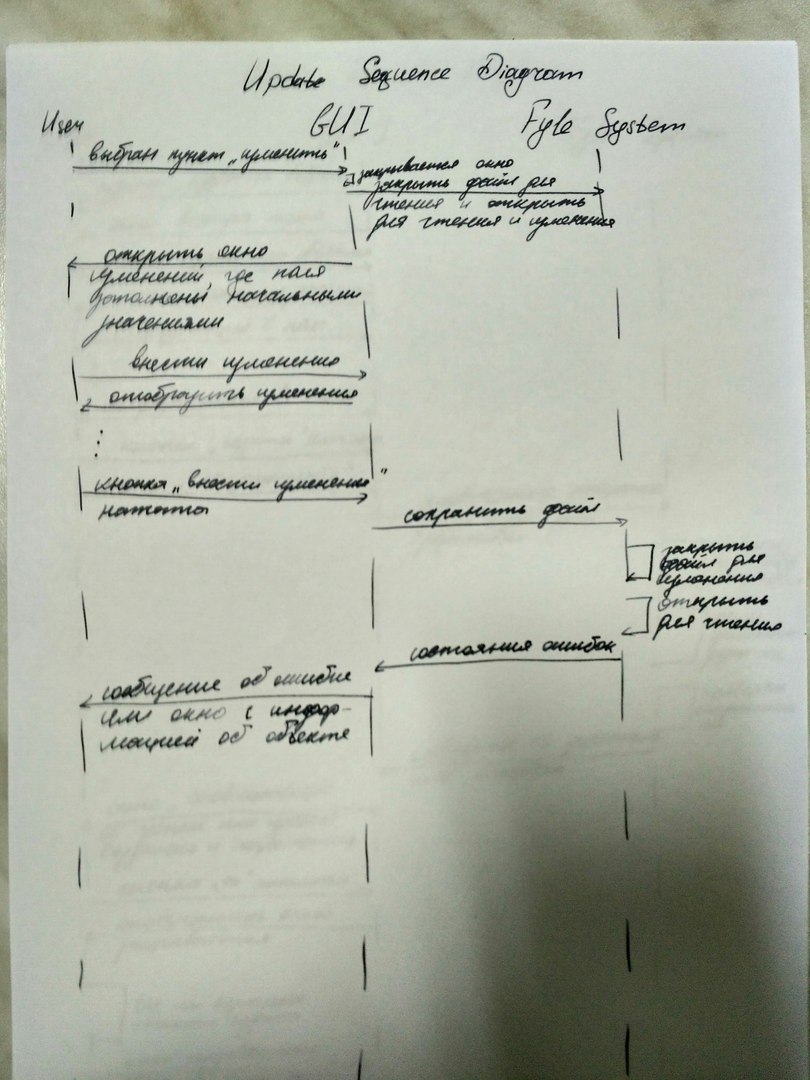 Update Sequence Diagram
User GUI Fyle System
выбран пункт „изменить"
закрывается окно
закрыть файл для
чтения и открыть
для чтения и изменения
открыть окно
изменений, где поля
заполнены начальными
значениями
внести изменение
отобразить изменения
⋮
кнопка „внести изменение"
нажата
сохранить файл
закрыть
файл для
изменения
открыть
для чтения
состояния ошибок
сообщение об ошибке
или окно с инфор-
мацией об объекте